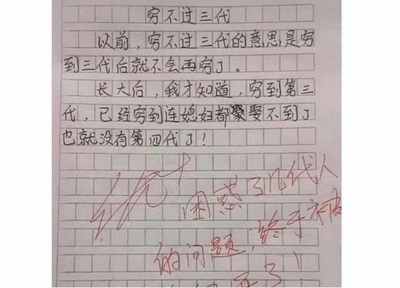 穷不过三代
以前,穷不过三代的意思是穷
到三代后就不会再穷了。
长大后,我才知道,穷到第三
代,已经穷到连媳妇都娶不到了
也就没有第四代了!
优+
困惑了几代人
的问题,终于被